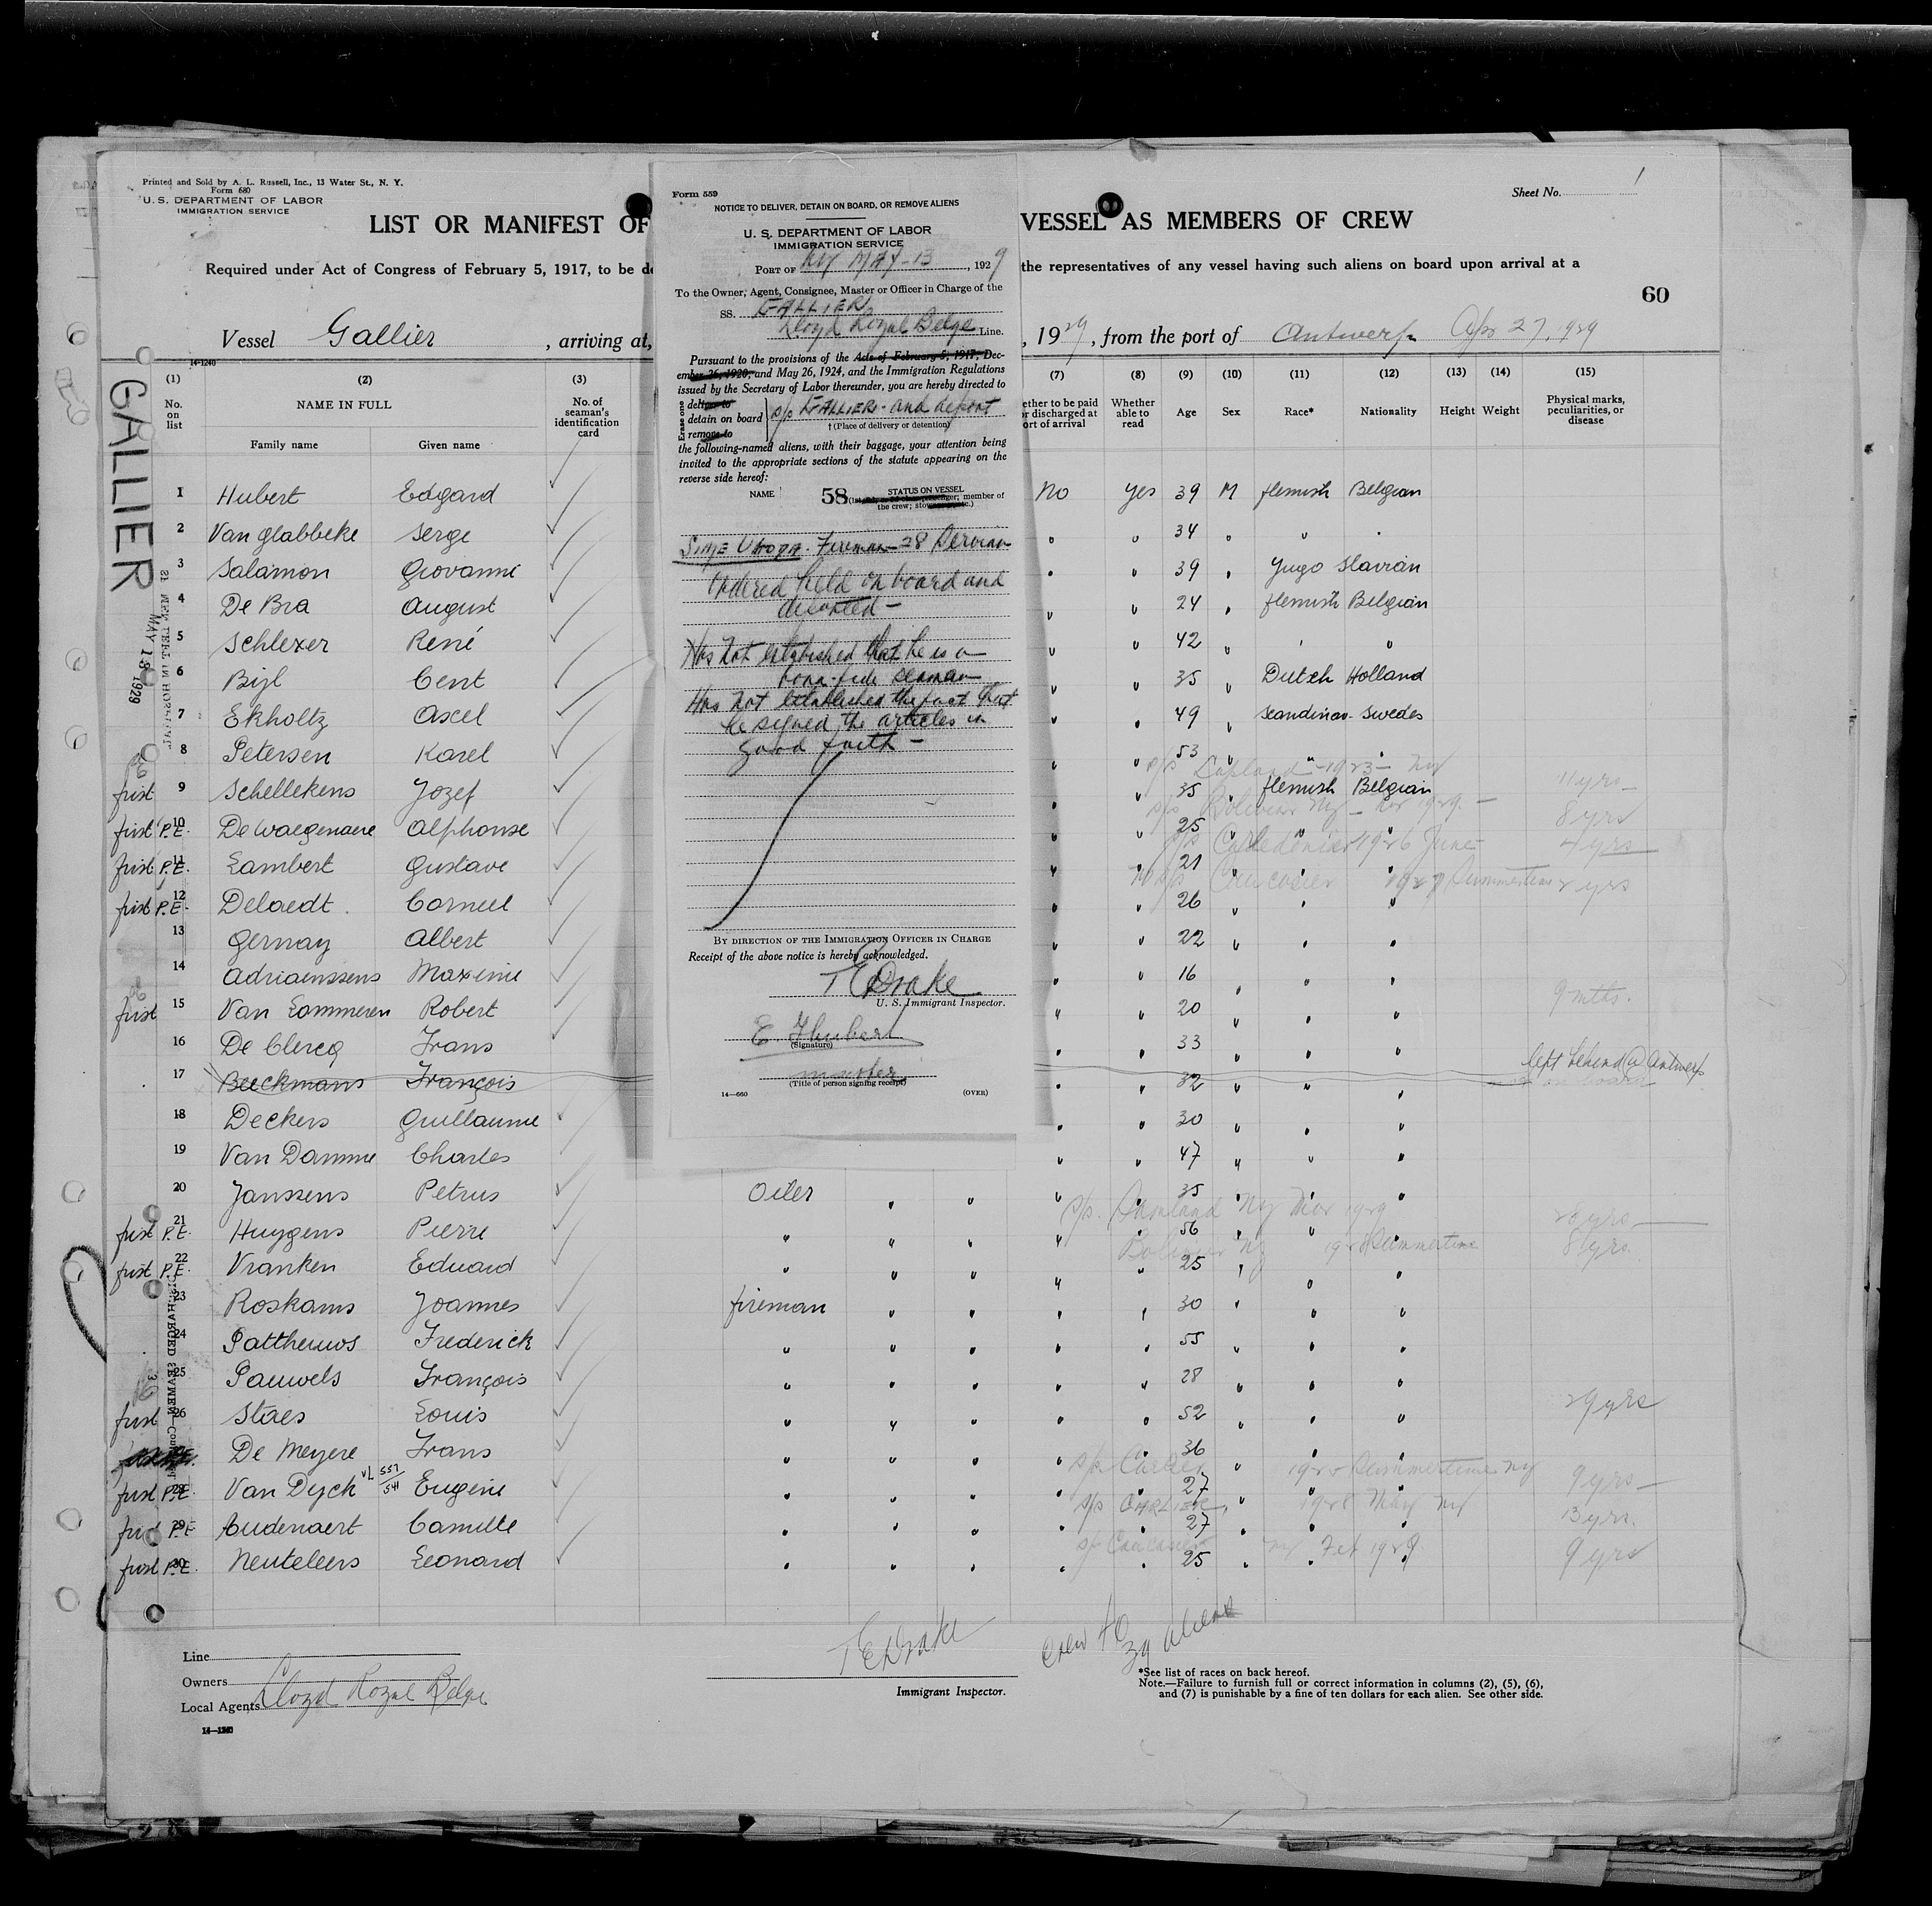 Printed and Sold by A. L. Russell, Inc., 13 Water St., N. Y.
Form 680
U. S. DEPARTMENT OF LABOR
IMMIGRATION SERVICE
Sheet No. 1
LIST OR MANIFEST OF
VESSEL AS MEMBERS OF CREW
Required under Act of Congress of February 5, 1917, to be de
the representatives of any vessel having such aliens on board upon arrival at a
60
Vessel Gallier , arriving at,
, 1929, from the port of Antwerp Apr 27, 1929
14-1240
GALLIER
MAY 13 1929
(1) (2) (3)
No. on list
NAME IN FULL
Family name Given name
No. of seaman's identification card
(7) (8) (9) (10) (11) (12) (13) (14) (15)
ether to be paid or discharged at ort of arrival
Whether able to read
Age Sex Race* Nationality Height Weight
Physical marks, peculiarities, or disease
Form 559
NOTICE TO DELIVER, DETAIN ON BOARD, OR REMOVE ALIENS
U. S. DEPARTMENT OF LABOR
IMMIGRATION SERVICE
PORT OF NY MAY-13, 1929
To the Owner, Agent, Consignee, Master or Officer in Charge of the
SS. GALLIER,
Lloyd Royal Belge Line.
Pursuant to the provisions of the Acts of February 5, 1917, Dec-
ember 26, 1920, and May 26, 1924, and the Immigration Regulations
issued by the Secretary of Labor thereunder, you are hereby directed to
Erase one
deliver to
detain on board
remove to
s/s GALLIER - and deport
† (Place of delivery or detention)
the following-named aliens, with their baggage, your attention being
invited to the appropriate sections of the statute appearing on the
reverse side hereof:
NAME 58 STATUS ON VESSEL
member of
the crew;
Fireman - 28
Ordered held on board and
deported -
Has not established that he is a
bona-fide seaman
Has not established the fact that
he signed the articles in
good faith -
BY DIRECTION OF THE IMMIGRATION OFFICER IN CHARGE
Receipt of the above notice is hereby acknowledged.
T E Drake
U. S. Immigrant Inspector.
E. Hubert
(Signature)
master
(Title of person signing receipt)
14—660 (OVER)
1 Hubert Edgard No Yes 39 M flemish Belgian
2 Van Glabbeke Serge " " 34 " " "
3 Salamon Giovanni " " 39 " Yugo Slavian
4 De Bra August " " 24 " flemish Belgian
5 Schlexer René " " 42 " " "
6 Bijl Cent " " 35 " Dutch Holland
7 Ekholtz Axel " " 49 " Scandinav. Swedes
8 Petersen Karel " " 53 " " "
s/s Lapland - 1923 - NY 11 yrs
first 9 Schellekens Jozef " " 35 " flemish Belgian
8 yrs
first P.E. 10 De Waegenaere Alphonse " " 25 " " "
s/s Caledonier 1926 June 4 yrs
first P.E. 11 Lambert Gustave " " 21 " " "
Caucasier Summertime 2 yrs
first P.E. 12 Delaedt Corneel " " 26 " " "
13 Gernay Albert " " 22 " " "
14 Adriaenssens Maxime " " 16 " " "
9 mths.
first 15 Van Lommeren Robert " " 20 " " "
16 De Clercq Frans " " 33 " " "
left behind @ Antwerp
17 Beeckmans François " " 32 " " "
18 Deckers Guillaume " " 30 " " "
19 Van Damme Charles " " 47 " " "
20 Janssens Petrus Oiler " " " " 35 " " "
NY Mar 1929
first P.E. 21 Huygens Pierre " " " " " 56 " " "
NY 1928 Summertime 8 yrs.
first P.E. 22 Vranken Eduard " " " " " 25 " " "
23 Roskams Joannes fireman " " " " 30 " " "
24 Pattheuws Frederick " " " " " 55 " " "
25 Pauwels François " " " " " 28 " " "
first 26 Staes Louis " " " " " 52 " " " 29 yrs
De Meyere Frans " " " " " 36 " " "
Summertime NY 9 yrs
first P.E. 28 Van Dyck Eugene " " " " " 27 " " "
s/s CARLIER, 1928 May NY 13 yrs.
first P.E. 29 Oudenaert Camille " " " " " 27 " " "
s/s Caucasier NY Feb 1929 9 yrs
first P.E. 30 Neuteleers Leonard " " " " " 25 " " "
T E Drake
Immigrant Inspector.
Crew 40
39 aliens
Line
Owners
Local Agents Lloyd Royal Belge
14—1240
*See list of races on back hereof.
Note.—Failure to furnish full or correct information in columns (2), (5), (6),
and (7) is punishable by a fine of ten dollars for each alien. See other side.